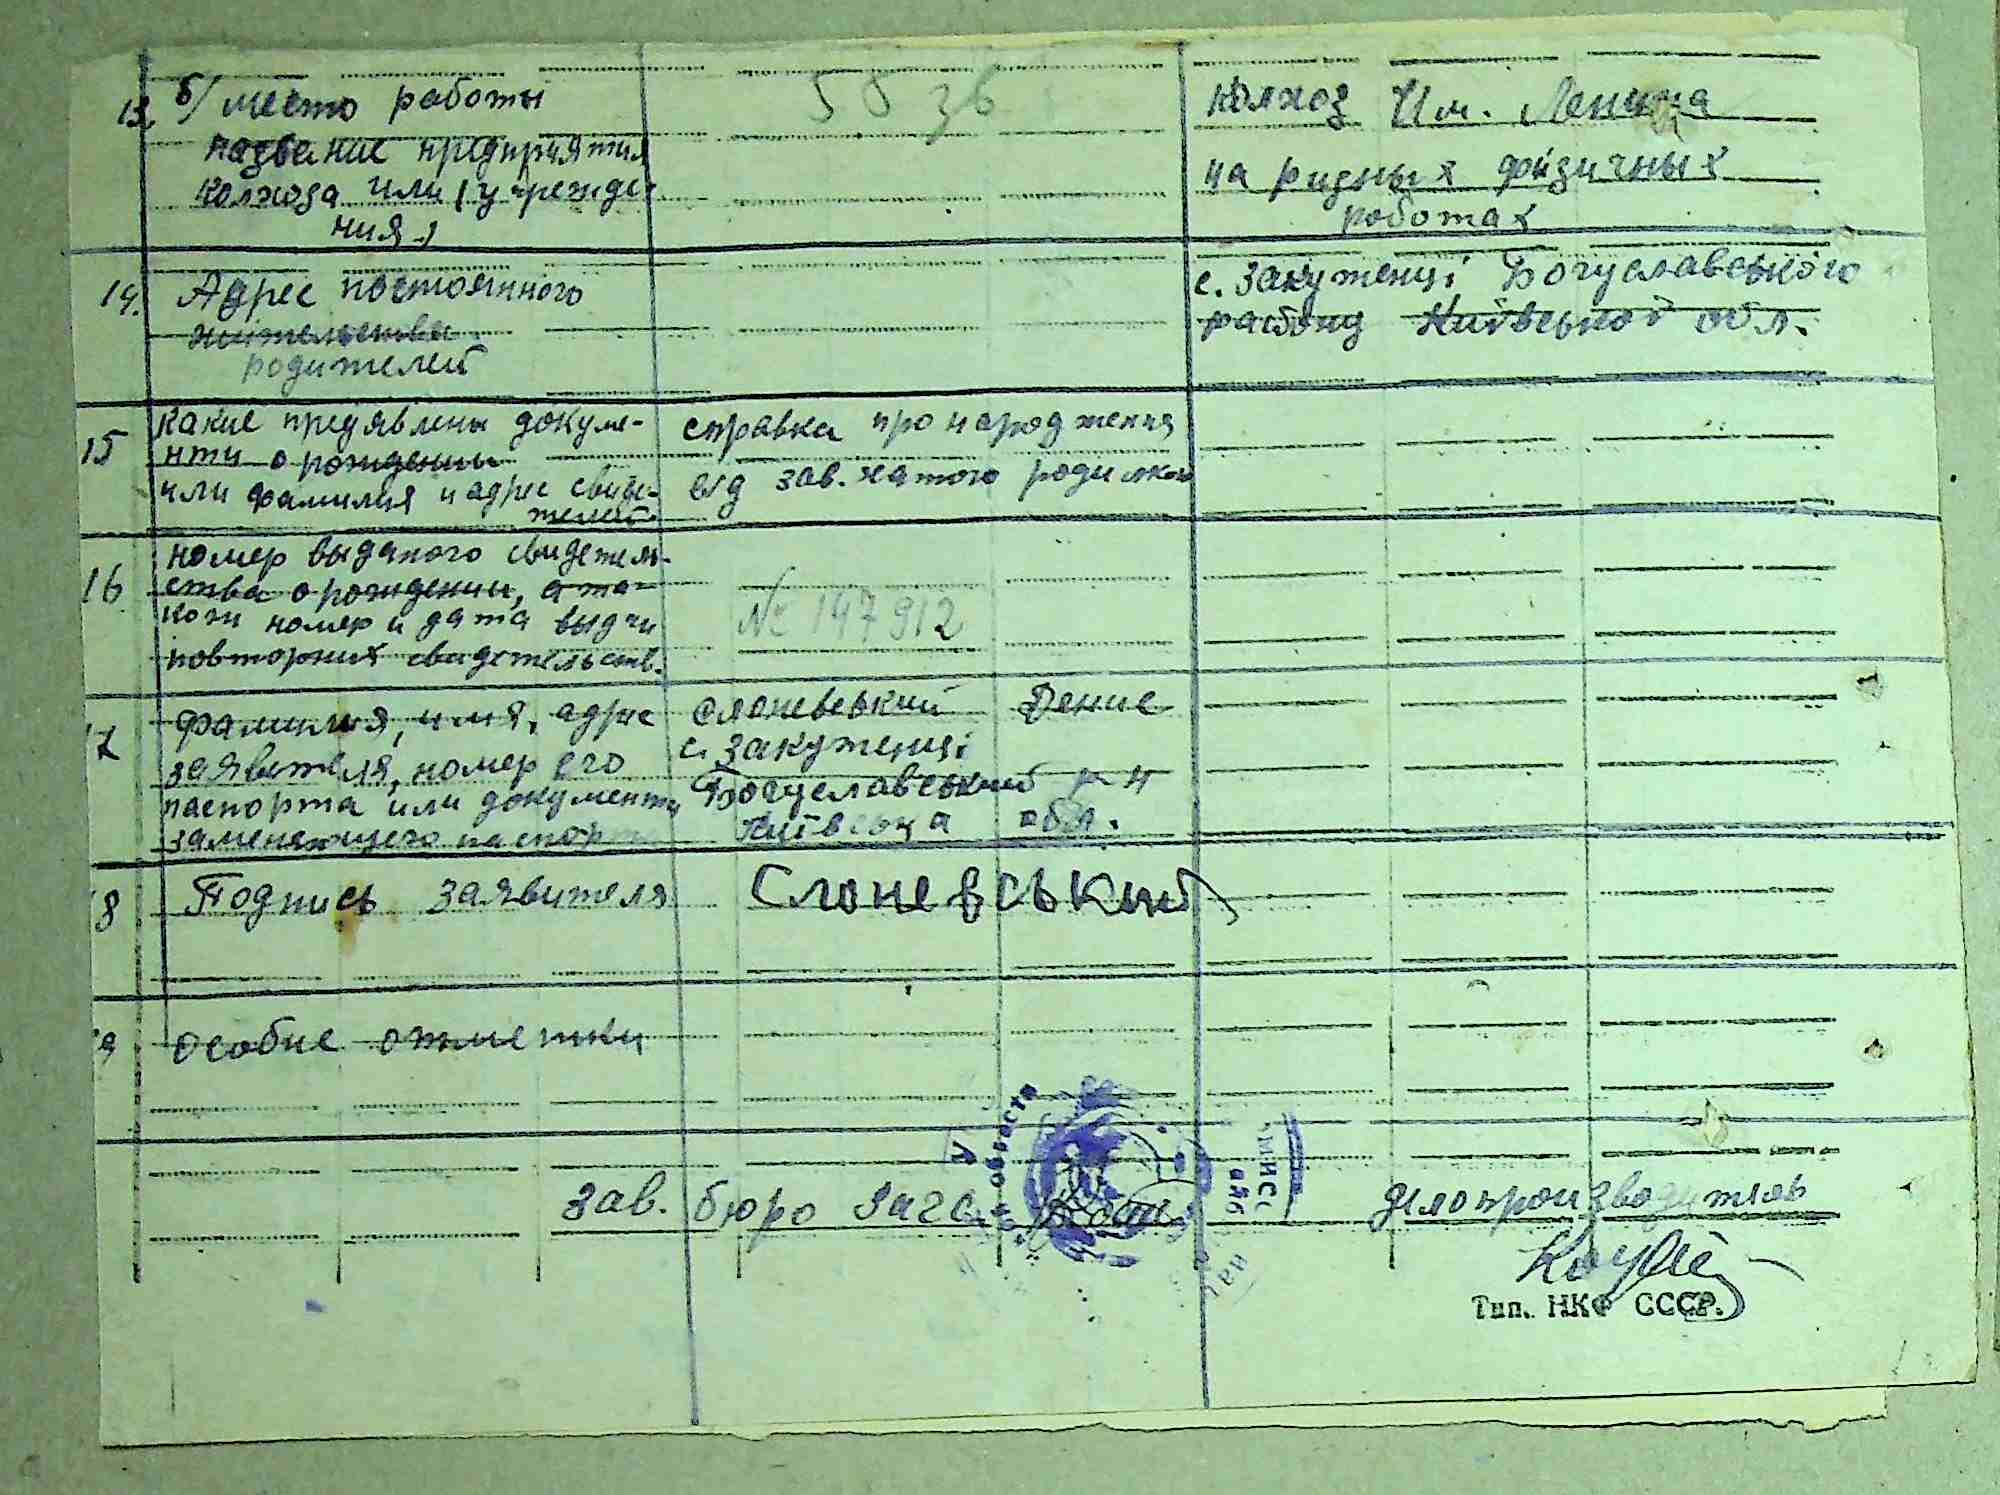 13. б/ место работы
название предприятия
колхоза или (учрежде-
ния.)
колхоз Им. Ленина
на ризных физичных
роботах
14. Адрес постоянного
жительства
родителей
с. Закутенці Богуславського
району Київської обл.
15 Какие предявлены докуме-
нти о рождении
или фамилия и адрес свиде-
телей
справка про народження
від зав. хатою родилкою
16 номер выданого свидетель-
ства о рождении, а та-
кожи номер и дата выдачи
повторних свидетельств.
№ 147912
17 Фамилия, имя, адрес
заявителя, номер его
паспорта или документа
заменяющего паспорт
Слоневський Денис
с. Закутенці
Богуславський р-н
Київська обл.
18 Подпись заявителя
Слоневський
19 Особие отметки
зав. бюро Загс
делопроизводитель
Тип. НКФ СССР.